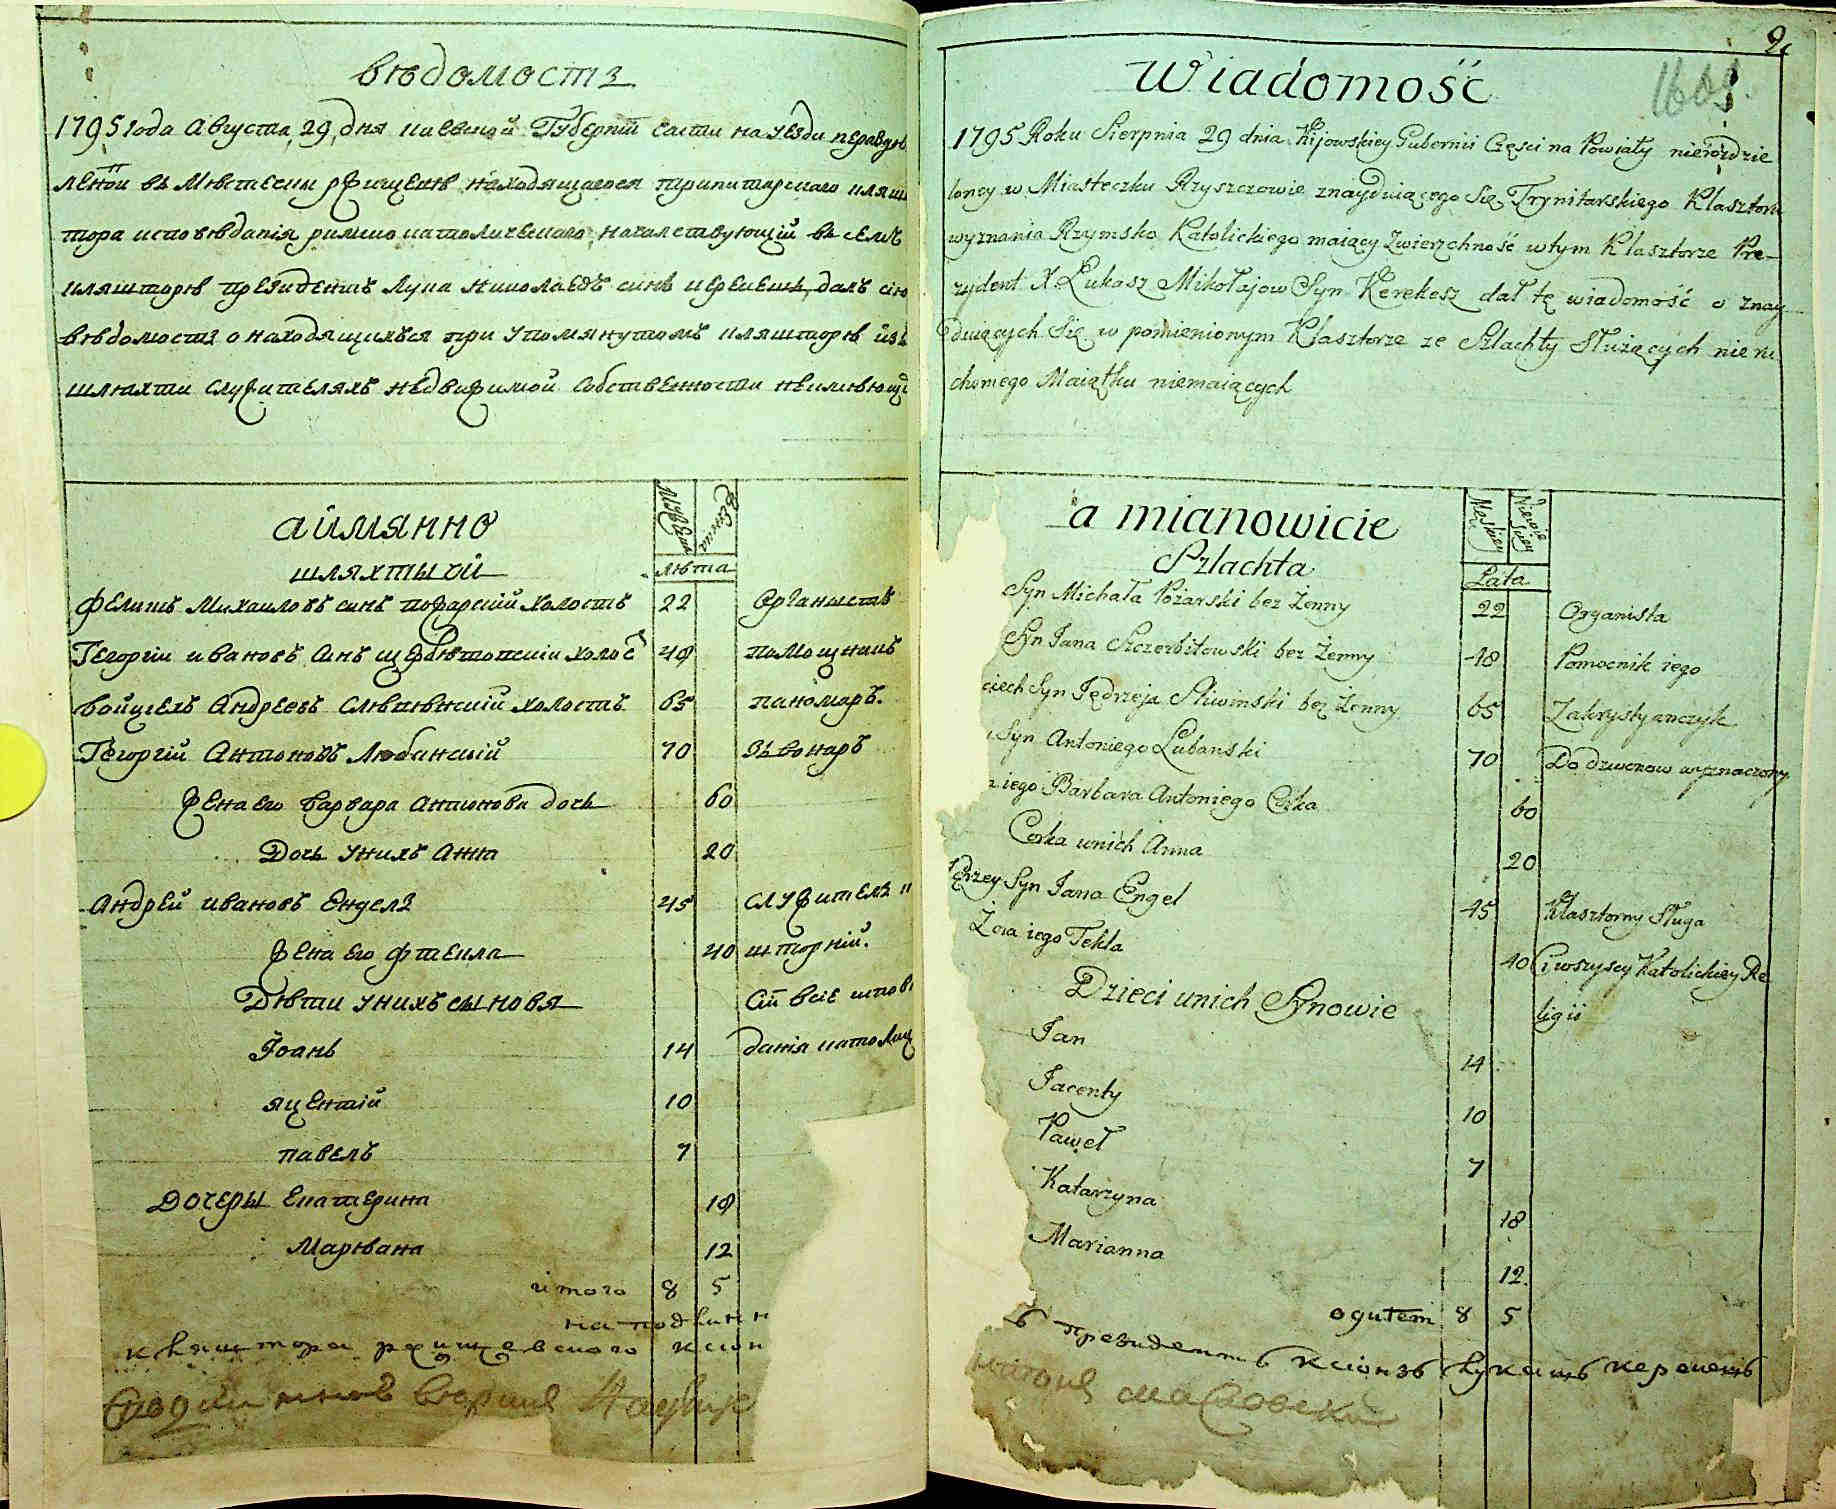 вѣдомостъ
1795 Года Августа 29 дня киевской Губернїи части на уѣзди нераздѣ
леной въ Мѣстечки ржищевѣ находящагося тринитарского кляш
тора исповѣданїя римско католическаго, началствующїй въ семъ
кляшторѣ президентъ Лука николаевъ синъ керекешъ, далъ сїю
вѣдомость о находящихъся при упомянутомъ кляшторѣ изъ
шляхти служителяхъ недвижимой собственности неимѣющи
аймянно
шляхтычи
Мужеска
Женска
лѣта
Феликсъ Михаиловъ синъ пожарскїй холостъ 22 Органыстъ
Георгїи ивановъ синъ щербѣтовскїи холос 48 помощникъ
войцехъ Андреевъ Слѣвѣнскїй холостъ 65 паномаръ.
Георгїй Антоновъ Любанскїй 70 звонаръ
жена его варвара антонова дочь 60
Дочь унихъ Анна 20
Андрей ивановъ Енгелъ 45 служителъ к
жена его Фтекла 40 шторнїй.
Дѣти унихъ сыновя сїи всіе исповѣ
Іоанъ 14 данїя католиц
яцентїй 10
павелъ 7
Дочеры Екатерина 18
Марѣана 12
итого 8 5
на подлинн
кляштора ржищевского ксіон

2
1605.
Wiadomość
1795 Roku Sierpnia 29 dnia Kijowskiey Gubernii Częsci na Powiaty nierozdzie
loney w Miasteczku Rzyszczowie znayduiącego Się Trynitarskiego Klasztoru
wyznania Rzymsko Katolickiego maiący Zwierzchność w tym Klasztorze Pre-
zydent X. Łukasz Mikołajow Syn Kerekesz dał tę wiadomość o znay
duiących Się w pomienionym Klasztorze ze Szlachty Służących nieru
chomego Maiątku niemaiących
a mianowicie
Szlachta
Męskiey
Niewieściey
Lata
Syn Michała Pożarski bez Żenny 22 Organista
Syn Jana Szczerbitowski bez Żenny 48 Pomocnik iego
ciech Syn Jędrzeja Śliwinski bez Żenny 65 Zakrystyanczyk
Syn Antoniego Lubanski 70 Do dzwonow wyznaczony
iego Barbara Antoniego Corka 60
Corka unich Anna 20
ędrzey Syn Jana Engel 45 Klasztorny Sługa
Żona iego Tekla 40 Ci wszyscy Katolickiey Re
Dzieci unich Synowie ligii
Jan 14
Jacenty 10
Paweł 7
Katarzyna 18
Marianna 12
ogułem 8 5
президентъ ксіонзъ Лукашъ керекешъ